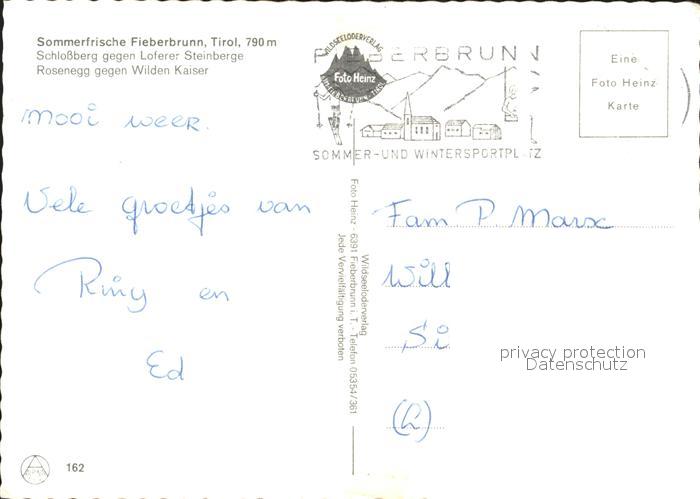 Sommerfrische Fieberbrunn, Tirol, 790 m
Schloßberg gegen Loferer Steinberge
Rosenegg gegen Wilden Kaiser
mooi weer.
Vele groetjes van
Riny en
Ed
162
WILDSEELODERVERLAG
Foto Heinz
FIEBERBRUNN
SOMMER-UND WINTERSPORTPL TZ
Eine
Foto Heinz
Karte
Wildseeloderverlag
Foto Heinz - 6391 Fieberbrunn i. T. - Telefon 05354/361
Jede Vervielfältigung verboten
Fam P. Marx
Will
Si
(L)
privacy protection
Datenschutz